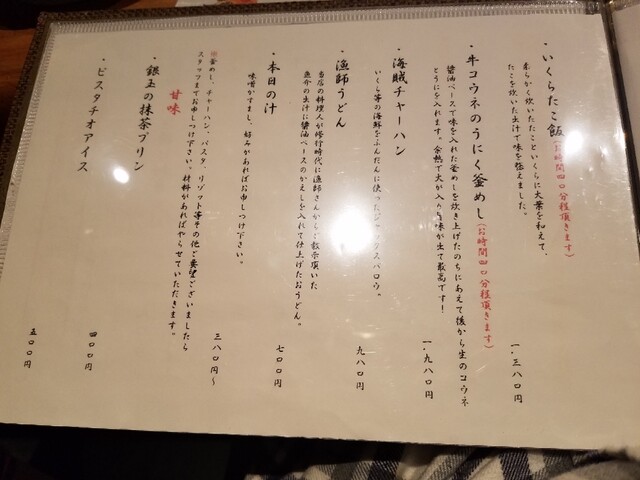 ・いくらたこ飯(お時間四〇分程頂きます)
柔らかく炊いたたこといくらに大葉を和えて、
たこを炊いた出汁で味を強えました。
一、三八〇円
・牛コウネのうにく釜めし(お時間四〇分程頂きます)
醤油ベースで味を入れた釜めしを炊き上げたのちにあえて後から生のコウネ
とうにを入れます。余熱で火が入り旨味が出て最高です!
一、九八〇円
・海賊チャーハン
いくら等の海鮮をふんだんに使ったジャックスパロウ。
九八〇円
・漁師うどん
当店の料理人が修行時代に漁師さんからご教示頂いた
魚介の出汁に醤油ベースのかえしを入れて仕上げたおうどん。
七〇〇円
・本日の汁
味噌かすまし、好みがあればお申しつけ下さい。
三八〇円～
※釜めし、チャーハン、パスタ、リゾット等その他ご要望ございましたら
スタッフまでお申しつけ下さい。材料があればやらせていただきます。
甘味
・銀玉の抹茶プリン
四〇〇円
・ピスタチオアイス
五〇〇円